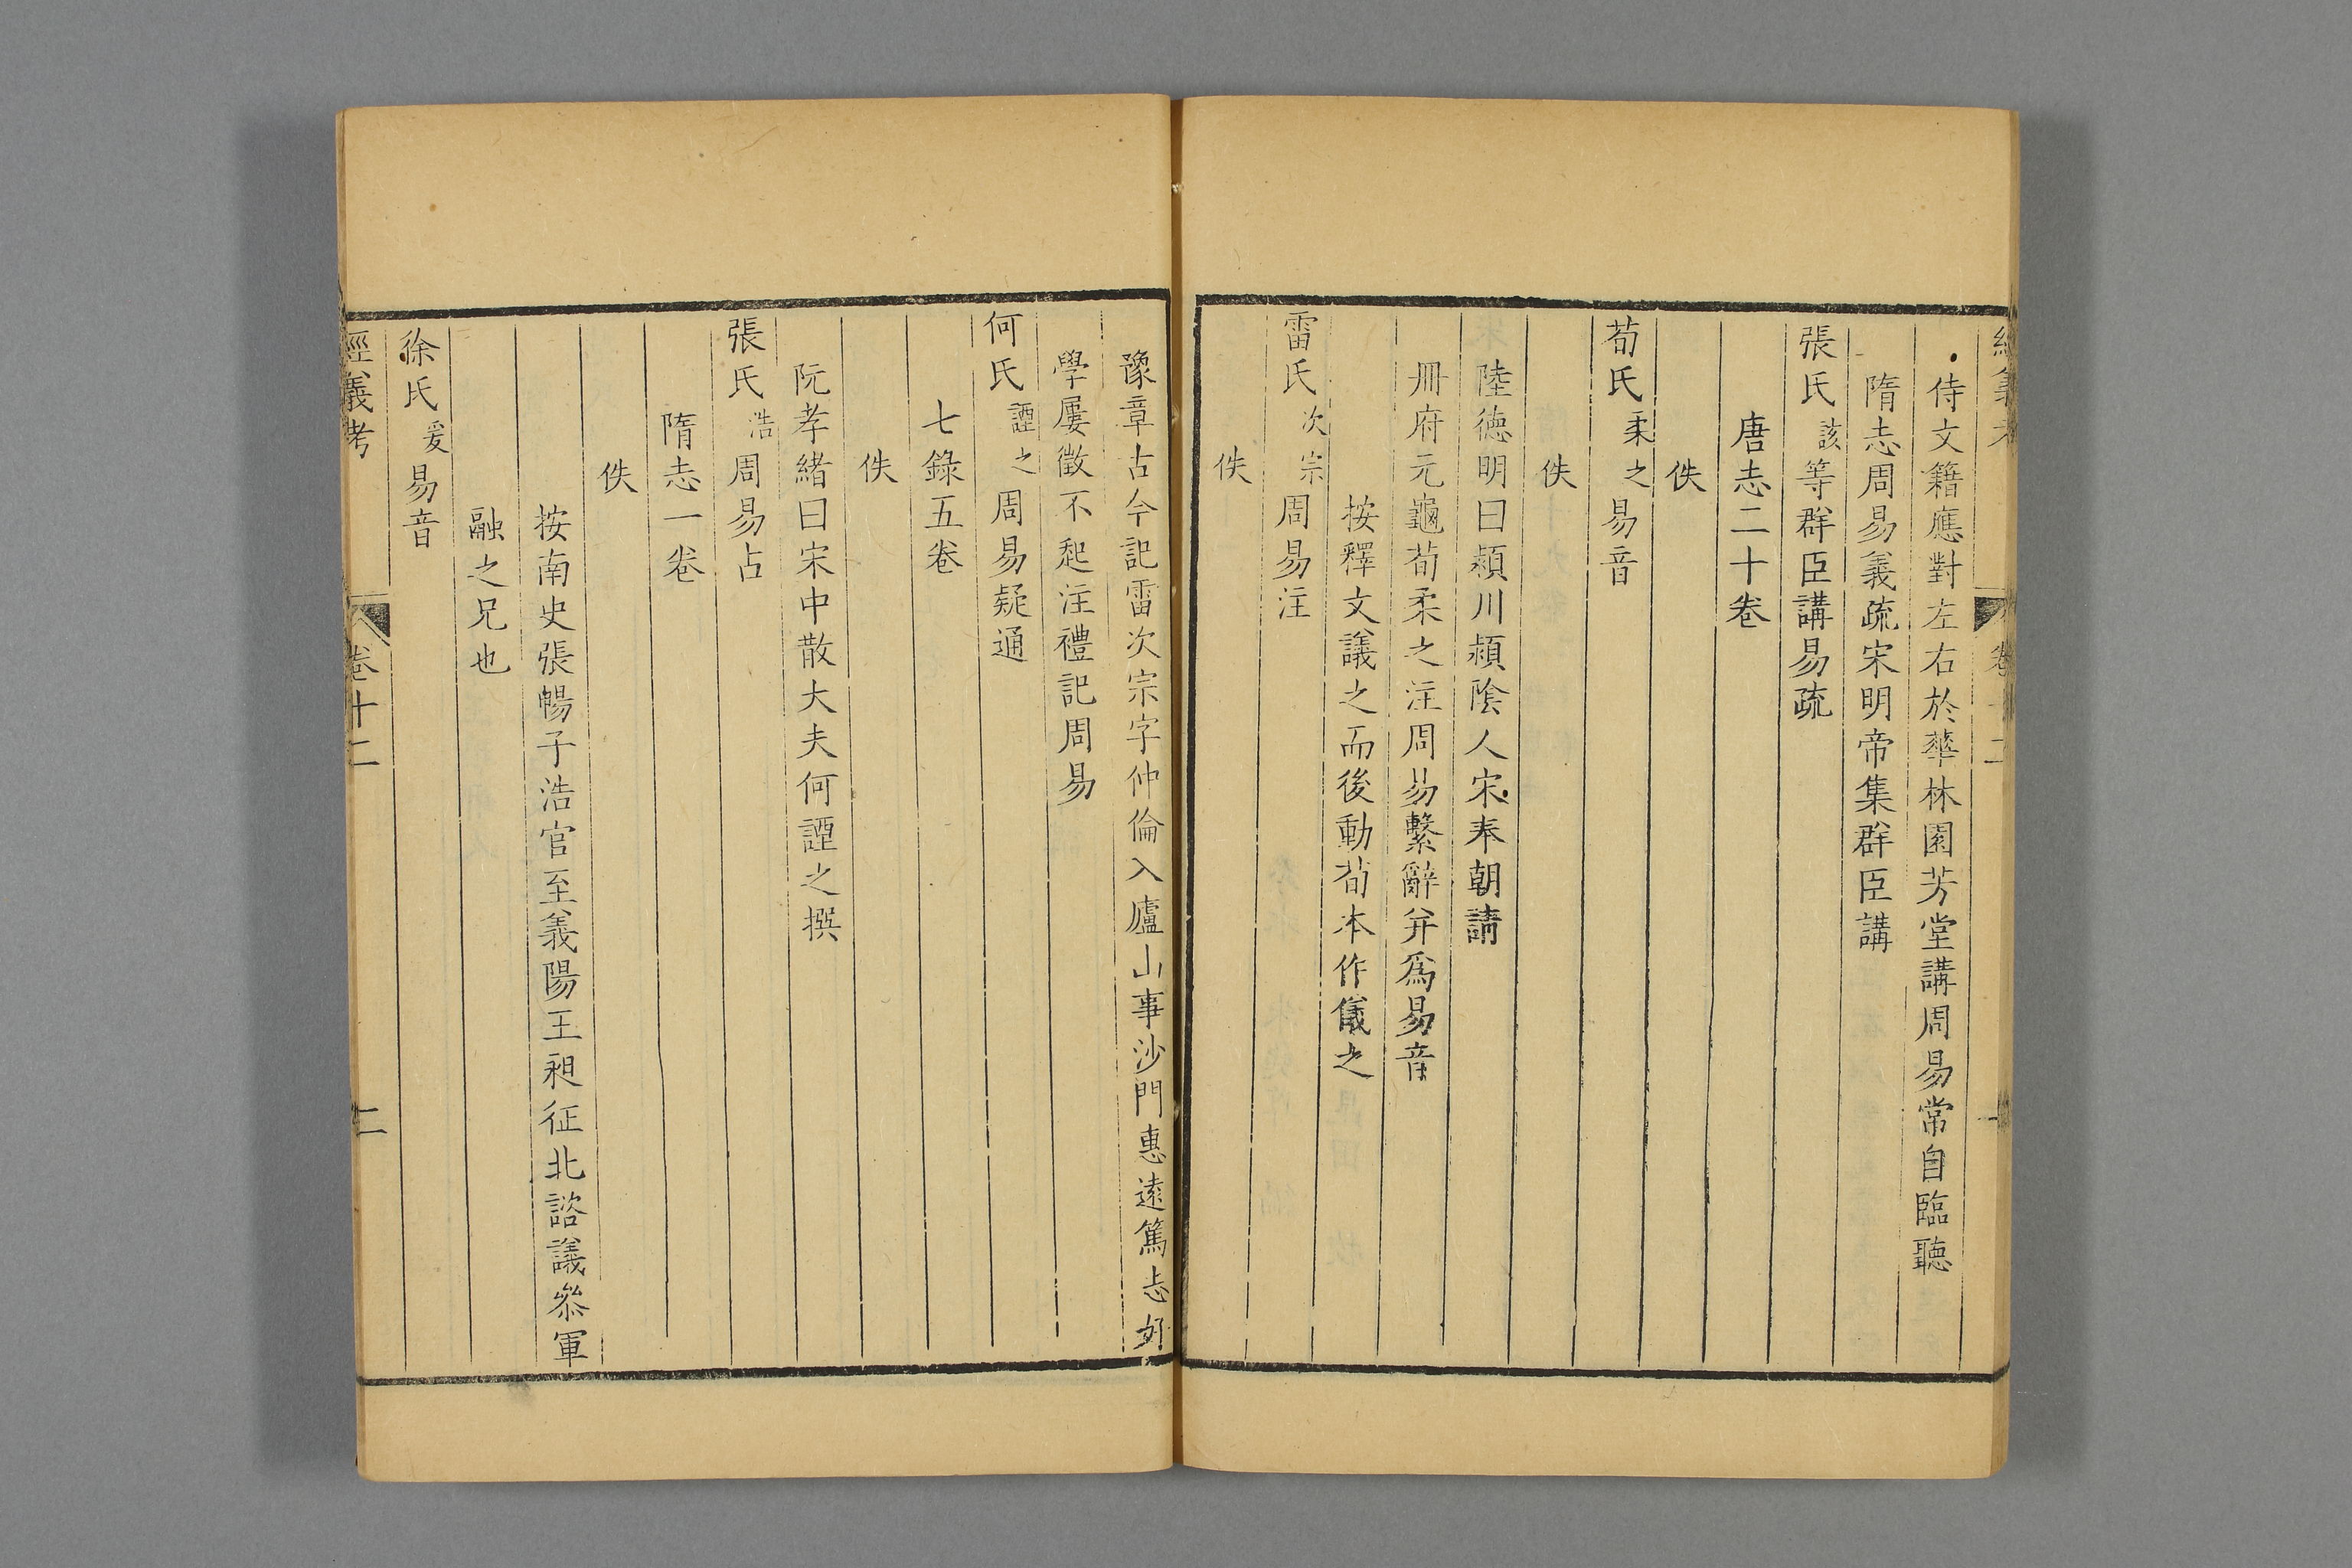 經義考 卷十二 一
侍文籍應對左右於華林園芳堂講周易常自臨聽
隋志周易義疏宋明帝集群臣講
張氏該等群臣講易疏
唐志二十卷
佚
荀氏柔之易音
佚
陸德明曰潁川潁陰人宋奉朝請
冊府元龜荀柔之注周易繫辭并爲易音
按釋文議之而後動荀本作儀之
雷氏次宗周易注
佚
豫章古今記雷次宗字仲倫入廬山事沙門惠遠篤志好
學屢徵不起注禮記周易
何氏諲之周易疑通
七錄五卷
佚
阮孝緒曰宋中散大夫何諲之撰
張氏浩周易占
隋志一卷
佚
按南史張暢子浩官至義陽王昶征北諮議參軍
融之兄也
徐氏爰易音
經義考 卷十二 二